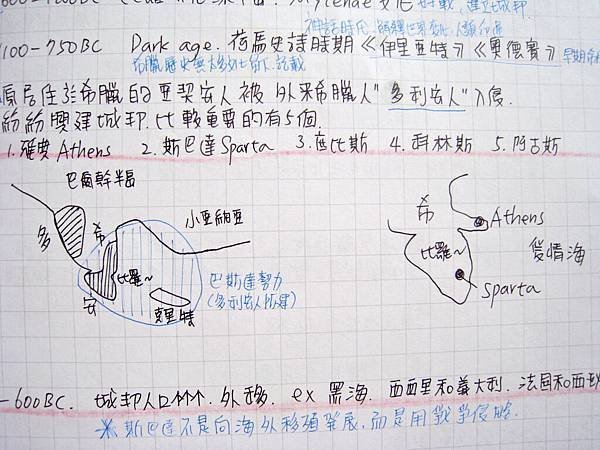 神話時代. 解釋世界變化. 人類命運
1100-750BC Dark age. 荷馬史詩時期《伊里亞特》《奧德賽》
原居住於希臘的亞契安人被外來希臘人"多利安人"入侵.
紛紛興建城邦. 比較重要的有5個.
1. 雅典 Athens 2. 斯巴達 Sparta 3. 底比斯 4. 科林斯 5. 阿古斯
巴爾幹半島
多
希
小亞細亞
比羅~
安
克里特
巴斯達勢力
(多利安人所建)
希
Athens
比羅~
愛情海
Sparta
-600BC. 城邦人口↑↑↑. 外移. ex 黑海. 西西里和義大利. 法國和西
※斯巴達不是向海外移殖發展,而是用戰爭侵略.